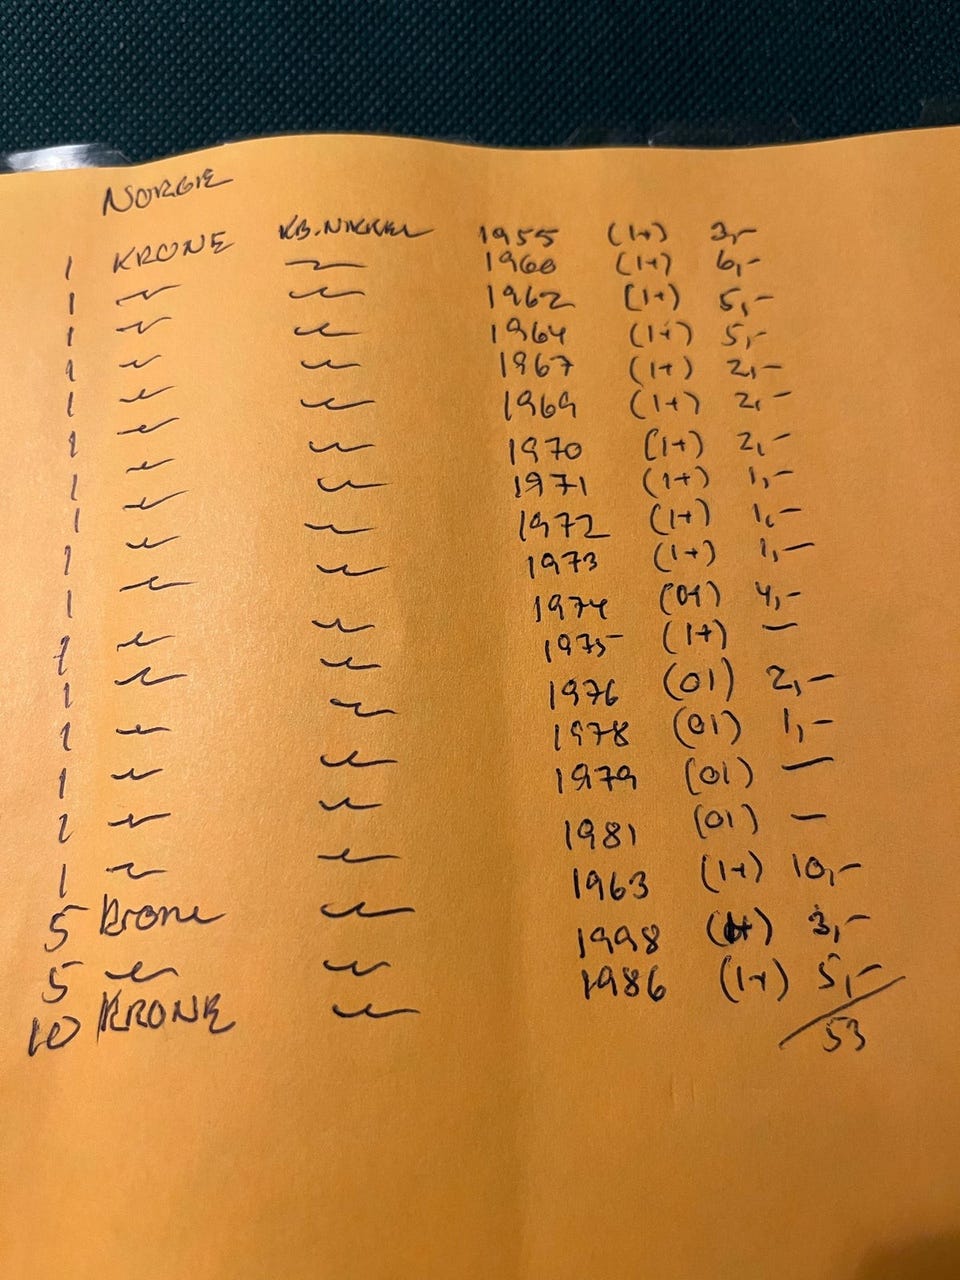 NORGE
1 KRONE KB.NIKKEL 1955 (1+) 3,-
1 〃 〃 1960 (1+) 6,-
1 〃 〃 1962 (1+) 5,-
1 〃 〃 1964 (1+) 5,-
1 〃 〃 1967 (1+) 2,-
1 〃 〃 1969 (1+) 2,-
1 〃 〃 1970 (1+) 2,-
1 〃 〃 1971 (1+) 1,-
1 〃 〃 1972 (1+) 1,-
1 〃 〃 1973 (1+) 1,-
1 〃 〃 1974 (01) 4,-
1 〃 〃 1975 (1+) —
1 〃 〃 1976 (01) 2,-
1 〃 〃 1978 (01) 1,-
1 〃 〃 1979 (01) —
1 〃 〃 1981 (01) —
5 Krone 〃 1963 (1+) 10,-
5 〃 〃 1998 (1+) 3,-
10 KRONE 〃 1986 (1+) 5,-
53